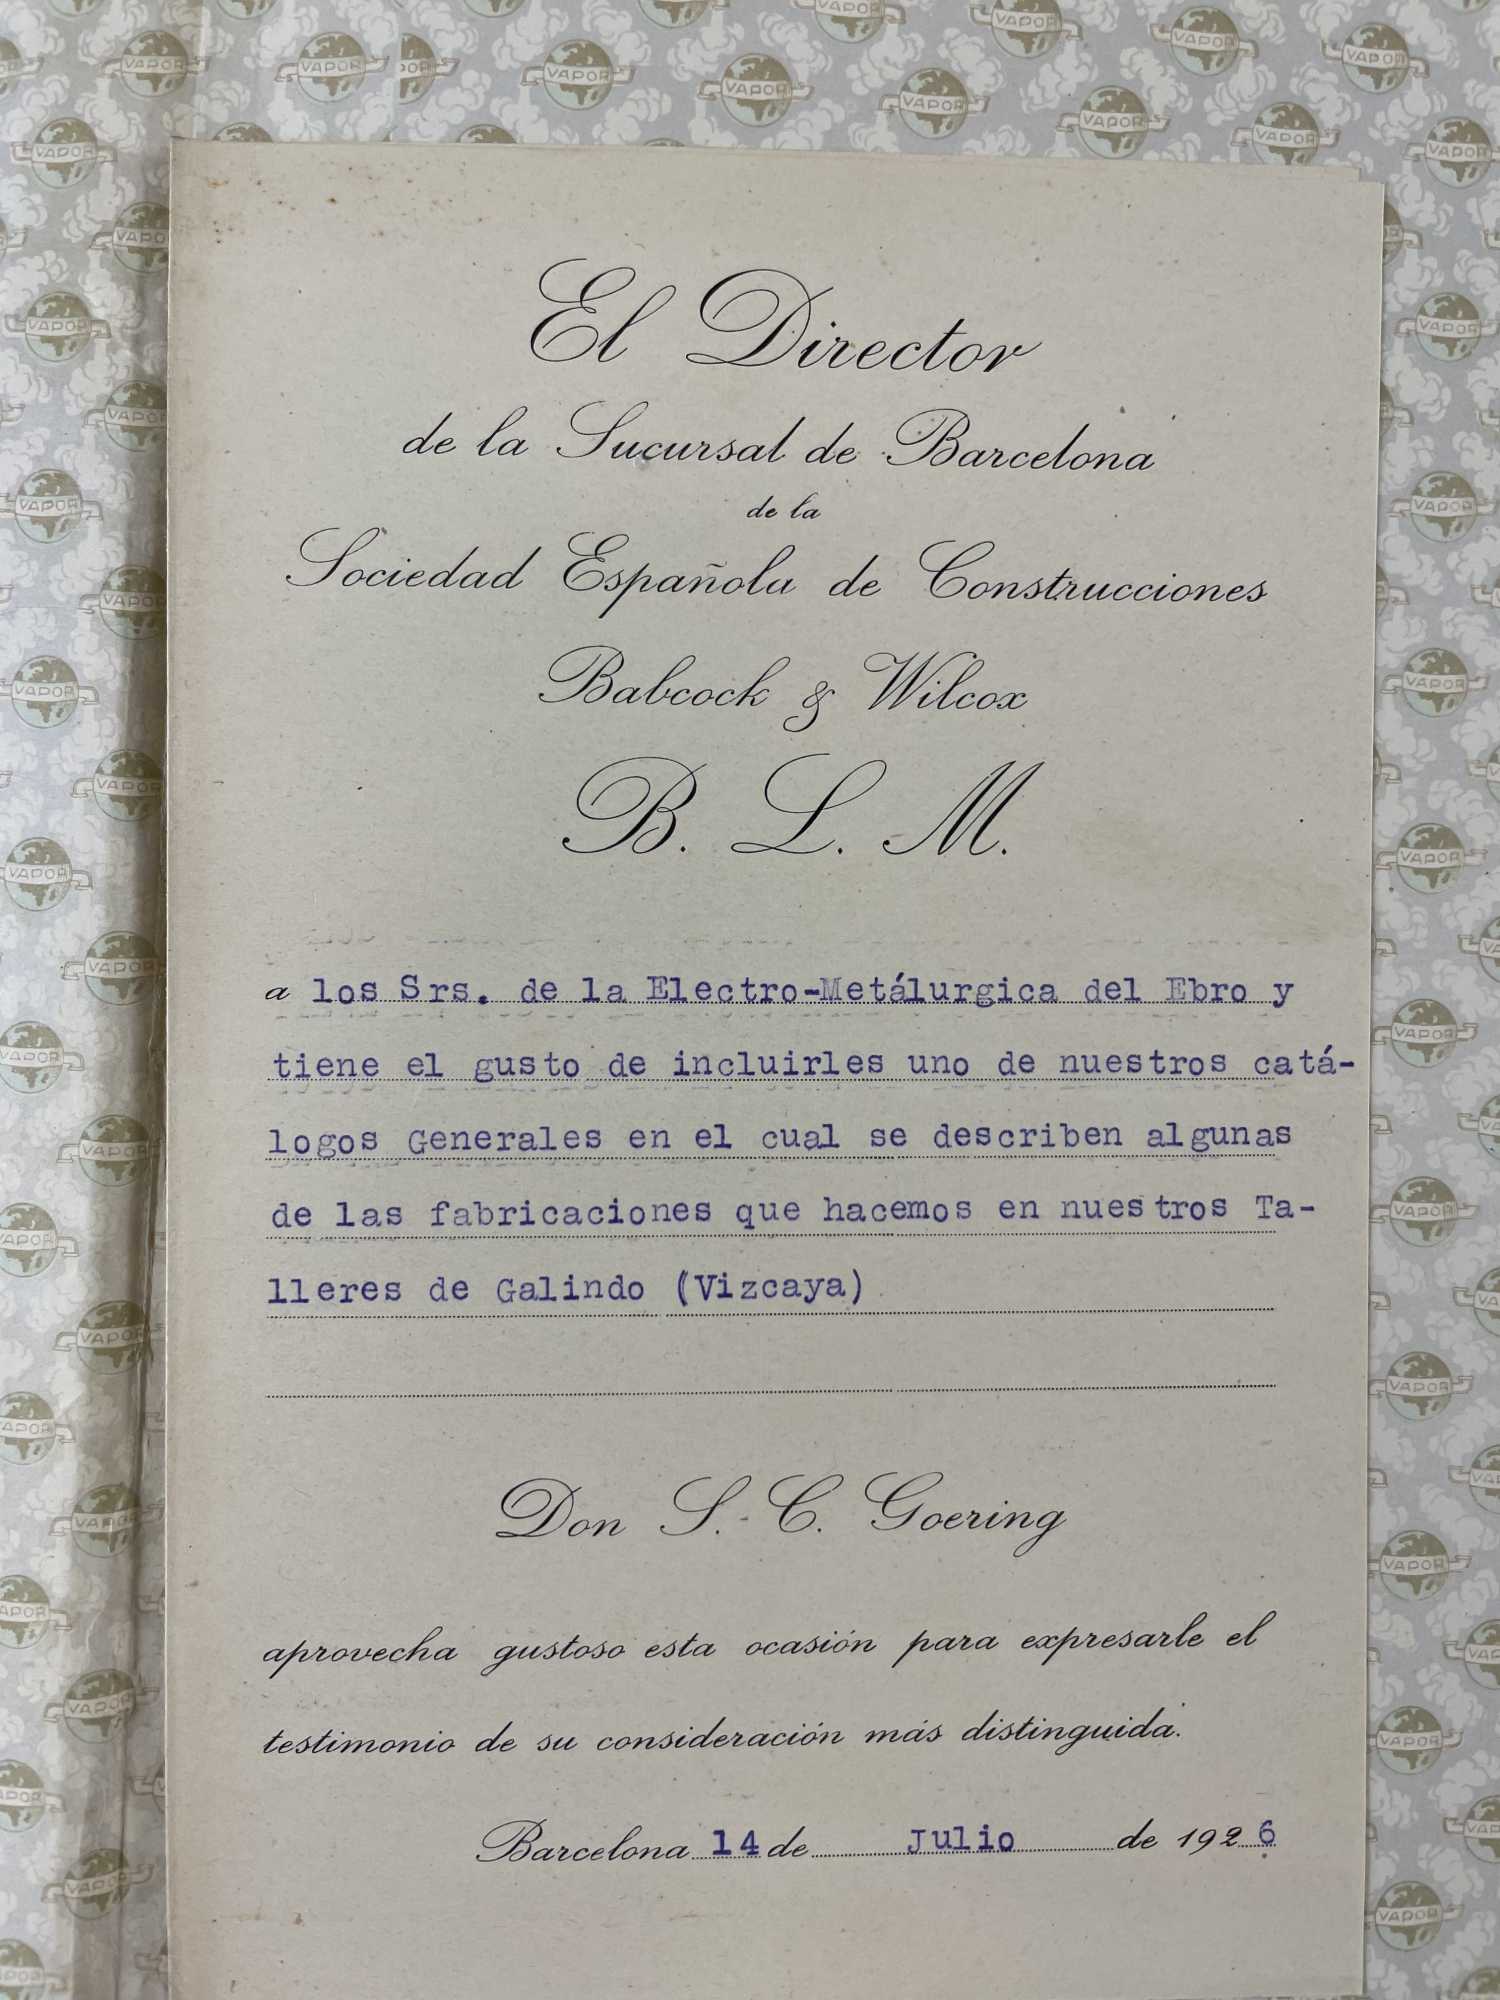 El Director
de la Sucursal de Barcelona
de la
Sociedad Española de Construcciones
Babcock & Wilcox
B. L. M.
a los Srs. de la Electro-Metálurgica del Ebro y
tiene el gusto de incluirles uno de nuestros catá-
logos Generales en el cual se describen algunas
de las fabricaciones que hacemos en nuestros Ta-
lleres de Galindo (Vizcaya)
Don S. C. Goering
aprovecha gustoso esta ocasión para expresarle el
testimonio de su consideración más distinguida.
Barcelona 14 de Julio de 1926
VAPOR